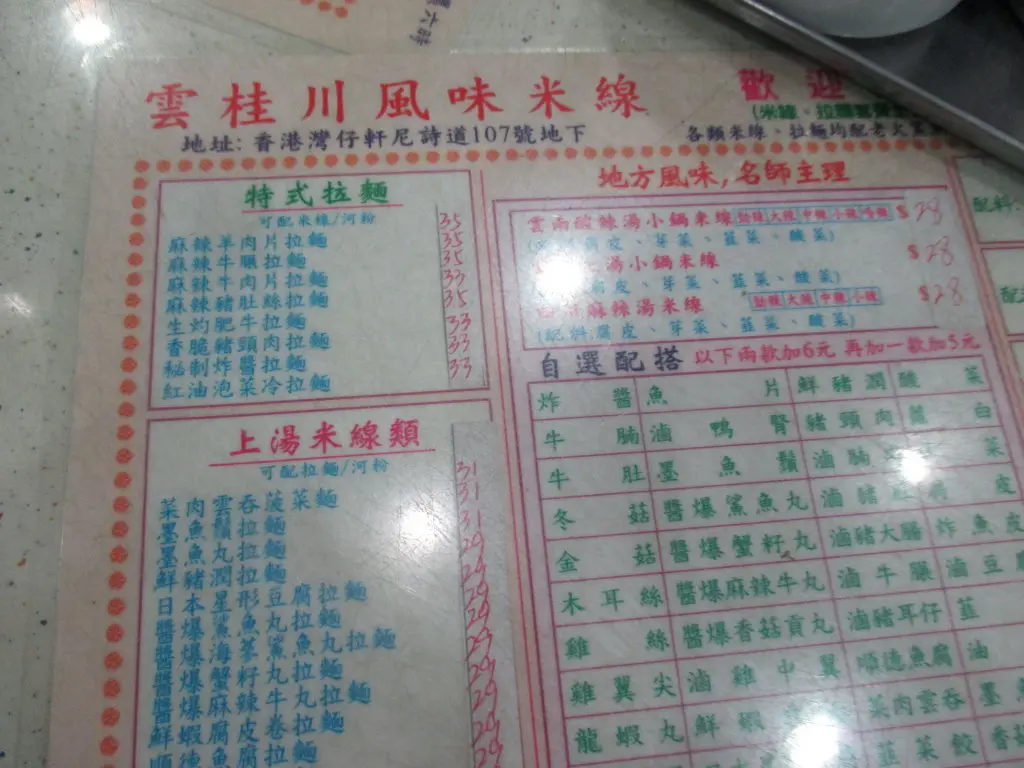 雲桂川風味米線
歡迎
地址: 香港灣仔軒尼詩道107號地下
各類米線、拉麵均配老火
特式拉麵
可配米線/河粉
麻辣羊肉片拉麵 35
麻辣牛腩拉麵 35
麻辣牛肉片拉麵 35
麻辣豬肚絲拉麵 33
生灼肥牛拉麵 35
香脆豬頸肉拉麵 33
秘制炸醬拉麵 33
紅油泡菜冷拉麵 33
上湯米線類
可配拉麵/河粉
菜肉雲吞菠菜麵 31
墨魚鬚拉麵 31
墨魚丸拉麵 31
鮮豬潤拉麵 29
日本星形豆腐拉麵 29
醬爆鯊魚丸拉麵 29
醬爆海參鯊魚丸拉麵 29
醬爆蟹籽丸拉麵 29
醬爆麻辣牛丸拉麵 29
鮮蝦腐皮卷拉麵 29
順德魚腐拉麵 29
地方風味,名師主理
雲南酸辣湯小鍋米線 勁辣 大辣 中辣 小辣 $28
腐皮、芽菜、韮菜、酸菜)
湯小鍋米線 $28
腐皮、芽菜、韮菜、酸菜)
麻辣湯米線 勁辣 大辣 中辣 小辣 $28
(配料腐皮、芽菜、韮菜、酸菜)
自選配搭 以下兩款加6元 再加一款加5元
炸醬 魚片 鮮豬潤 酸菜
牛腩 滷鴨腎 豬頸肉 蘿白
牛肚 墨魚鬚 滷 菜
冬菇 醬爆鯊魚丸 滷豬 腐皮
金菇 醬爆蟹籽丸 滷豬大腸 炸魚皮
木耳絲 醬爆麻辣牛丸 滷牛𦟌 滷豆腐
雞絲 醬爆香菇貢丸 滷豬耳仔 韮
雞翼尖 滷雞中翼 順德魚腐 油
龍蝦丸 鮮蝦 菜肉雲吞 墨魚
韮菜餃
配料: